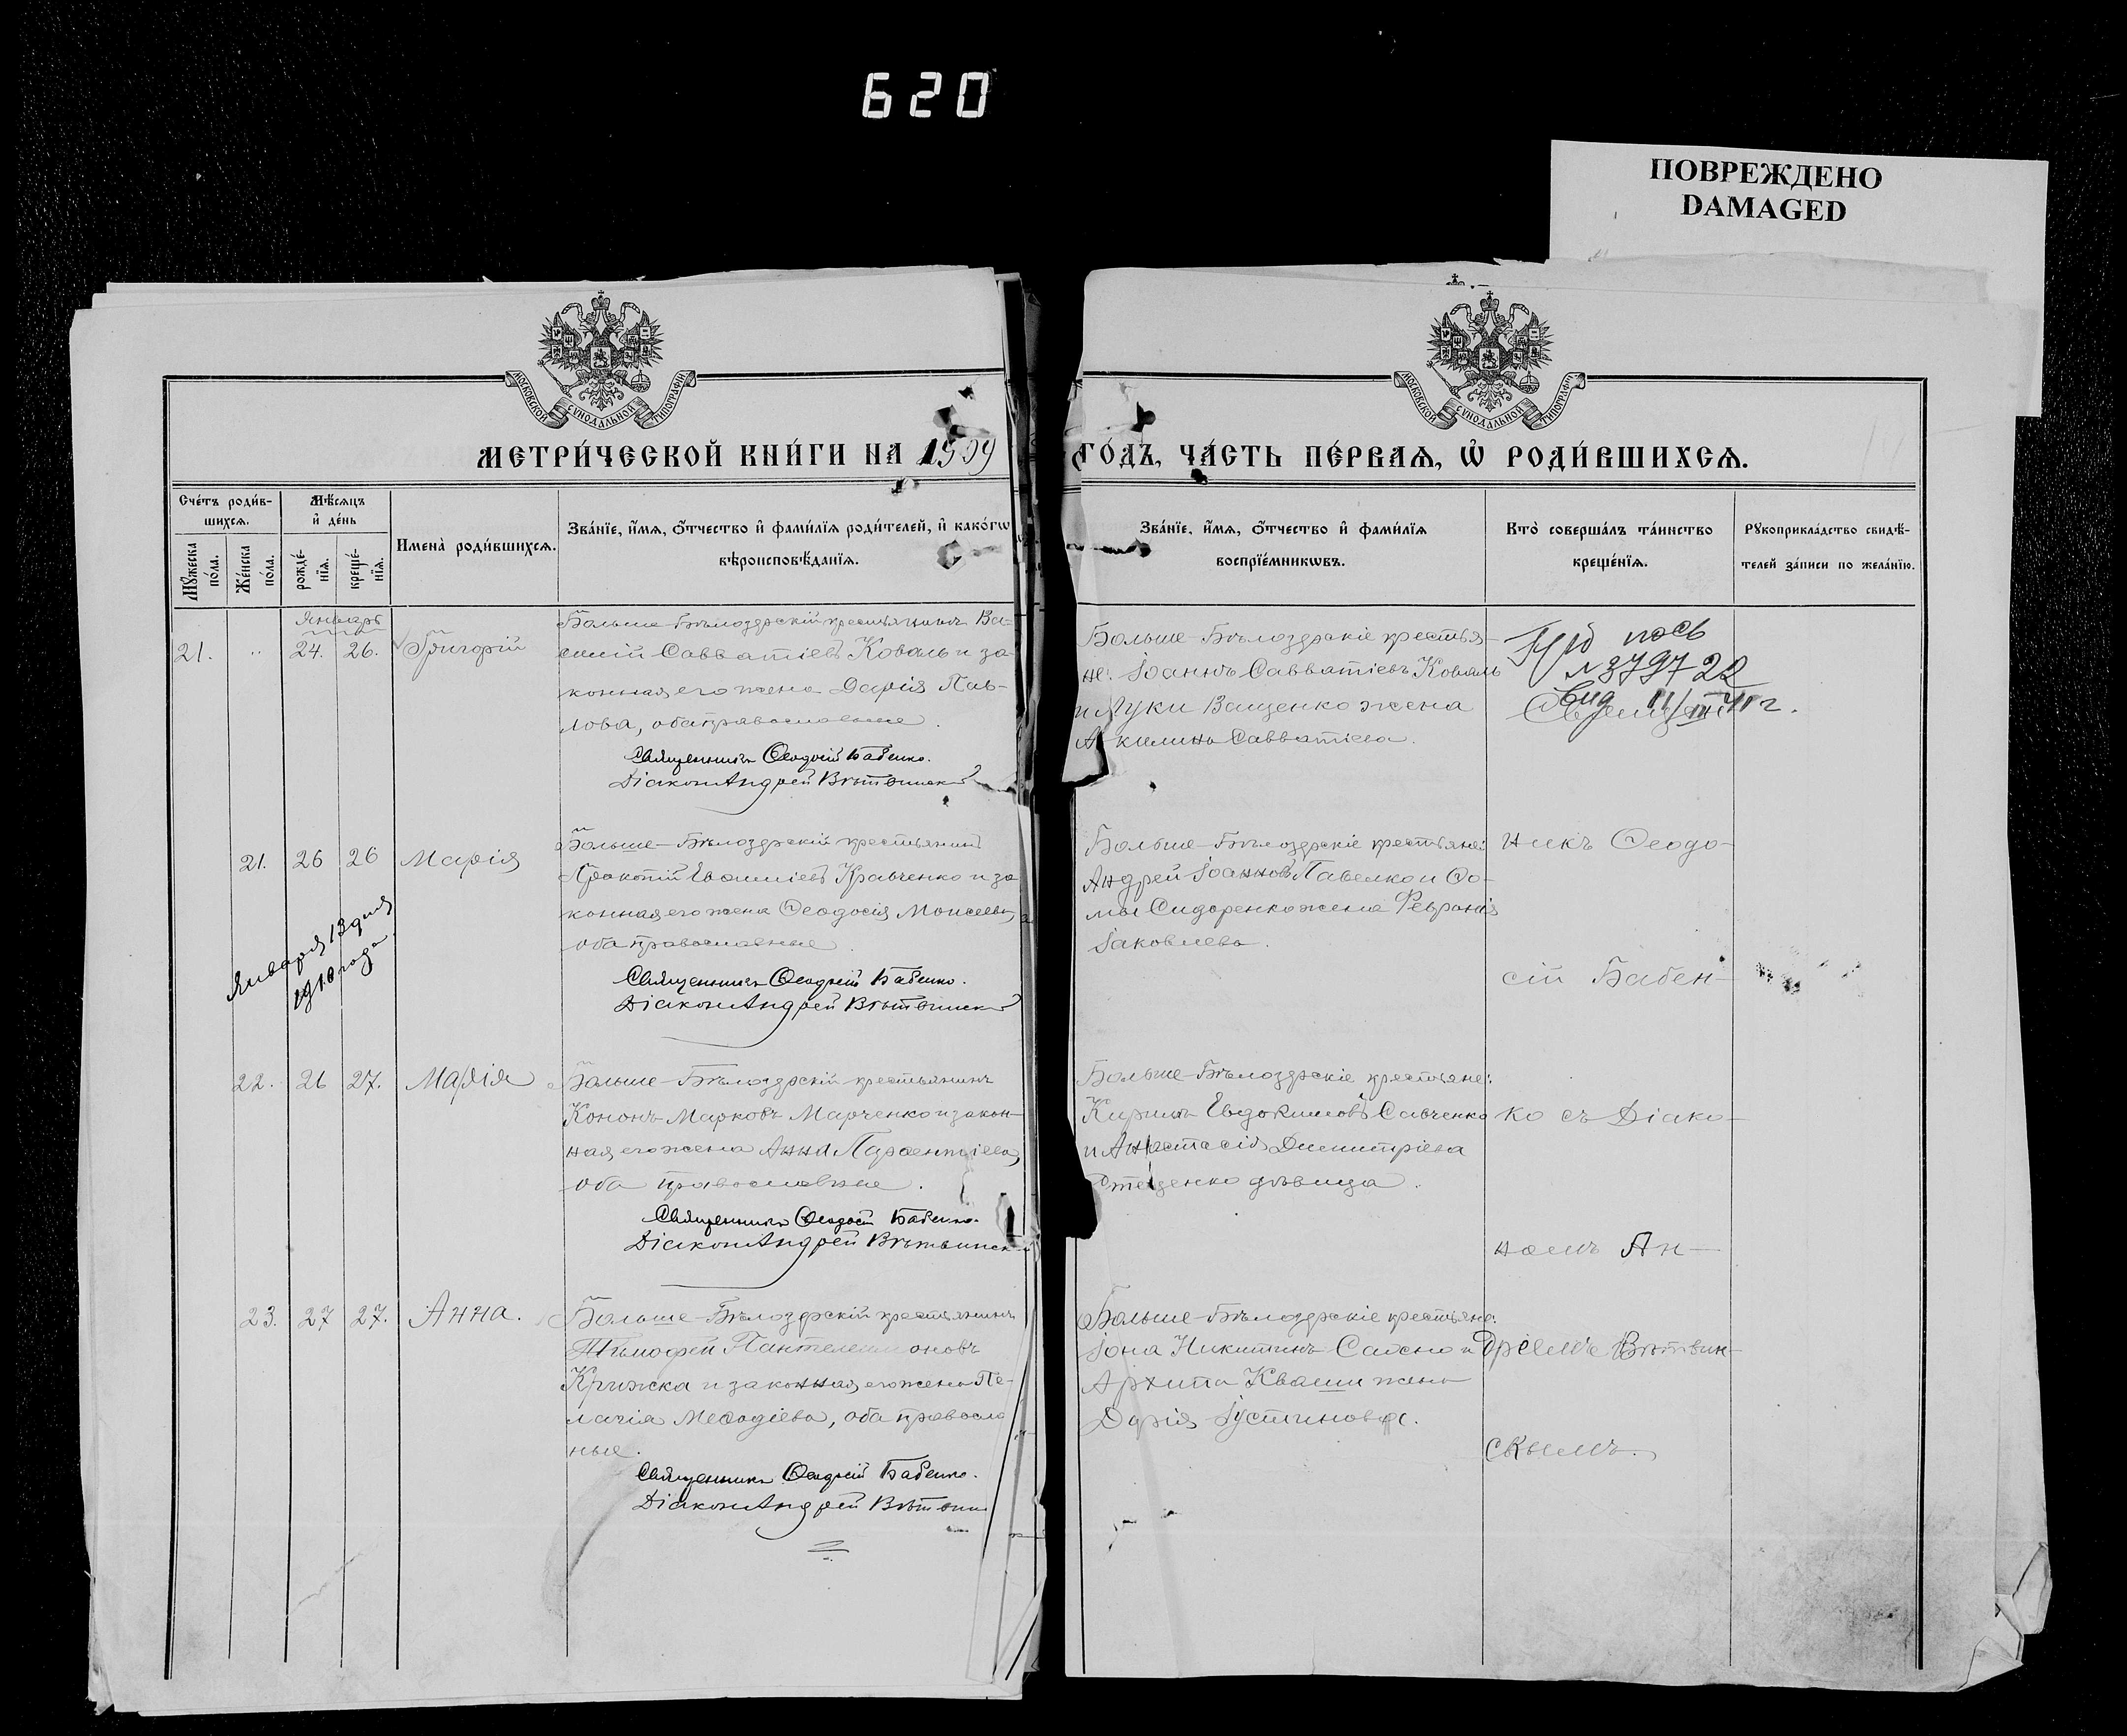 620
ПОВРЕЖДЕНО
DAMAGED
МОСКОВСКОЙ СУНОДАЛЬНОЙ ТИПОГРАФІИ
МОСКОВСКОЙ СУНОДАЛЬНОЙ ТИПОГРАФІИ
МЕТРИ́ЧЕСКОЙ КНИ́ГИ НА 1909
ГО́ДЪ, ЧА́СТЬ ПЕ́РВАѦ, Ѡ҆ РОДИ́ВШИХСѦ.
Сче́тъ роди́в-
шихсѧ.
Мѣ́сѧцъ
и҆ де́нь
Мꙋ́жеска
по́ла.
Же́нска
по́ла.
рожде́-
нїѧ.
креще́-
нїѧ.
И҆мена̀ роди́вшихсѧ.
Зва́нїе, и҆́мѧ, ѻ҆́тчество и҆ фами́лїѧ роди́телей, и҆ како́гѡ
вѣроисповѣ́данїѧ.
Зва́нїе, и҆́мѧ, ѻ҆́тчество и҆ фами́лїѧ
воспрїе́мникѡвъ.
Кто̀ соверша́лъ та́инство
креще́нїѧ.
Рꙋкоприкла́дство свидѣ́-
телей за́писи по жела́нїю.
Январь
21. " 24. 26. Григорій
Больше-Бѣлозерскій крестьянинъ Ва-
силій Савватіевъ Коваль и за-
конная его жена Дарія Пав-
лова, оба православные.
Священникъ Ѳеодосій Бабенко.
Діаконъ Андрей Вѣтвинск
Больше-Бѣлозерскіе крестья-
не: Іоаннъ Савватіевъ Коваль
и Луки Ващенко жена
Акилина Савватіева.
№ 379722
Вид 11/III 11 г.
21. 26 26 Марія
Больше-Бѣлозерскій крестьянинъ
Прокопій Евфиміевъ Кравченко и за-
конная его жена Ѳеодосія Моисеева,
оба православные.
Священникъ Ѳеодосій Бабенко.
Діаконъ Андрей Вѣтвинск
Января 13 дня
1910 года
Больше-Бѣлозерскіе крестьяне:
Андрей Іоанновъ Павелко и Ѳо-
мы Сидоренко жена Февронія
Іаковлева.
никъ Ѳеодо-
сій Бабен-
22. 26 27. Марія
Больше-Бѣлозерскій крестьянинъ
Кононъ Марковъ Марченко и закон-
ная его жена Анна Парѳентіева,
оба православные.
Священникъ Ѳеодосій Бабенко.
Діаконъ Андрей Вѣтвинск
Больше-Бѣлозерскіе крестьяне:
Кириллъ Евдокимовъ Савченко
и Анастасія Димитріева
Стеценко дѣвица.
ко съ Діако-
номъ Ан-
23. 27 27. Анна.
Больше-Бѣлозерскій крестьянинъ
Тимофей Пантелеимоновъ
Крижка и законная его жена Пе-
лагія Меѳодіева, оба правосла
ные.
Священникъ Ѳеодосій Бабенко.
Діаконъ Андрей Вѣтвин
Больше-Бѣлозерскіе крестьяне:
Іона Никитинъ и
Архипа Кваши жена
Дарія Іустинова.
дреемъ Вѣтвин-
скимъ.